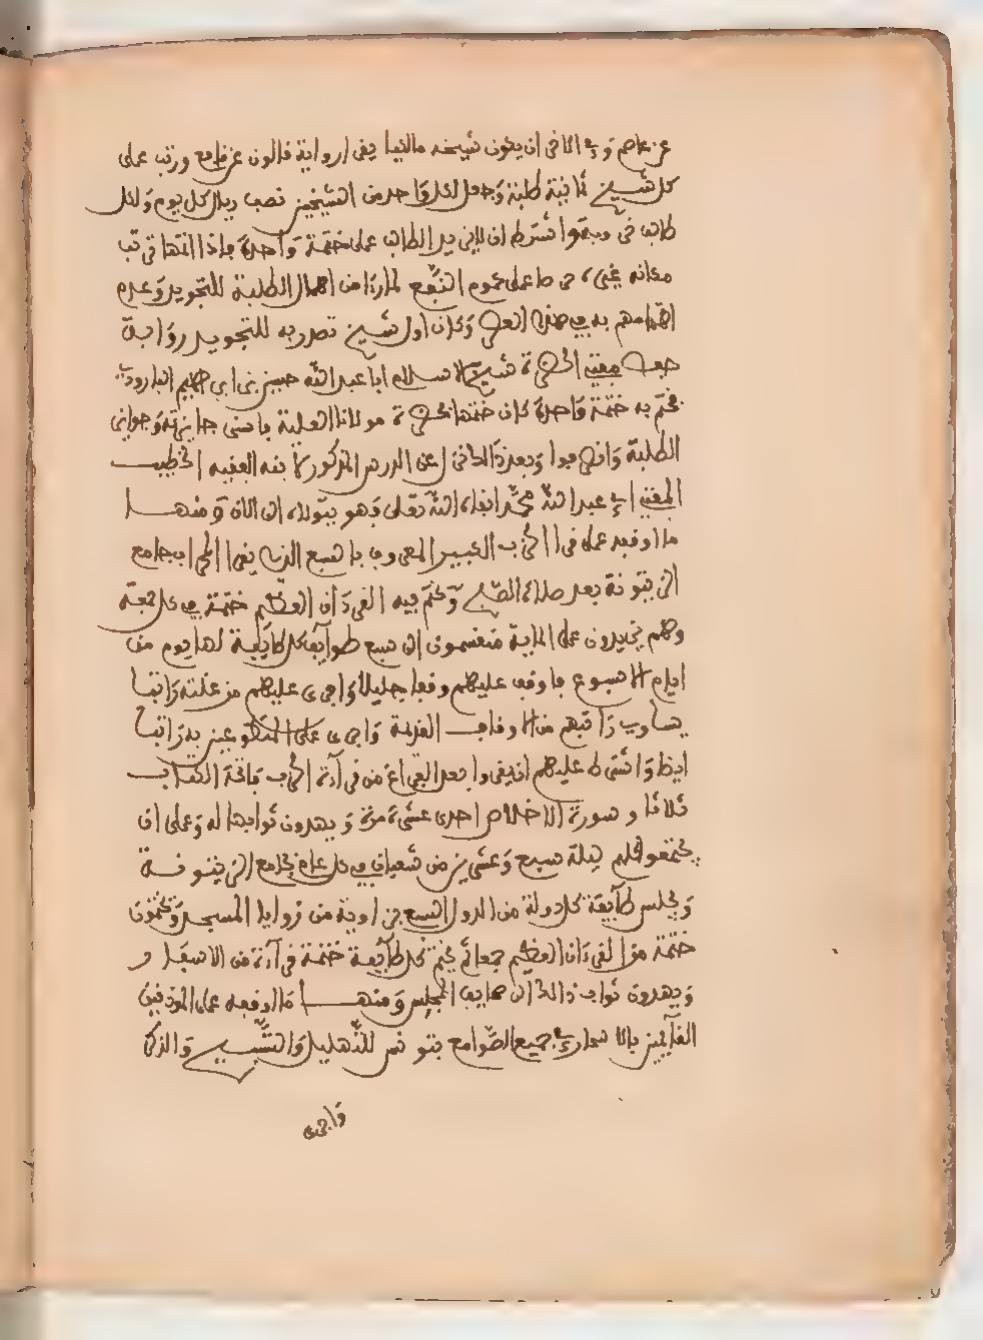 عن عاصم وفي الاخرى ان يكون شيخه مالكيا يقرئ رواية قالون عن نافع ورتب على
كل شيخ ثمانية طلبة وجعل لكل واحد من الشيخين نصف ريال كل يوم ولكل
طالب واشترط ان لا يزيد الطالب على ختمة واحدة فاذا انتهى رتب
مكانه غيره حرصا على عموم النفع لما رءا من اهمال الطلبة للتجويد وعدم
اهتمامهم به في هذا العصر وكان اول شيخ تصدر به للتجويد رواية
حفص مفتي الحضرة شيخ الاسلام ابا عبد الله حسين بن ابراهيم البارودي
فختم به ختمة واحدة كان ختمها بحضرة مولانا العلية فاسنى جايزته وجوايز
الطلبة وانصرفوا وبعد ذالك نزل عن الدرس المذكور لابنه الفقيه الخطيب
المفتي ابي عبد الله محمد ابقاه الله تعلى فهو يتولاه الى الان ومنهــا
ما اوقفه على قراء الحزب الكبير المعروف بالسبع الذي يقرا الحزاب بجامع
الزيتونة بعد صلاة الصبح وتختم فيه القرءان العظيم ختمة في كل جمعة
وهم يزيدون على الماية منقسمون الى سبع طوايف كل طايفة لها يوم من
ايام الاسبوع فاوقف عليهم وقفا جليلا واجرى عليهم من غلته راتبا
يساوي راتبهم من الاوقاف القديمة واجرى على المتطوعين به راتبا
ايضا واشترط عليهم ان يقرءوا بعد الفراغ من قراءة الحزب فاتحة الكتاب
ثلاثا وسورة الاخلاص احدى عشرة مرة ويهدون ثوابها له وعلى ان
يجتمعوا كلهم ليلة سبع وعشرين من شعبان في كل عام بجامع الزيتونــة
وتجلس طايفة كل دولة من الدول السبع بزاوية من زوايا المسجد وتختمون
ختمة من القرءان العظيم جمعا ثم تختم كل طايفة ختمة قراءة من الاسفار
ويهدون ثواب ذالك الى صحايف المجلس ومنهــا ما اوقفه على الموذنين
القايمين بالاسحار في جميع الصوامع بتونس للتهليل والتسبيح والذكر
واجرى